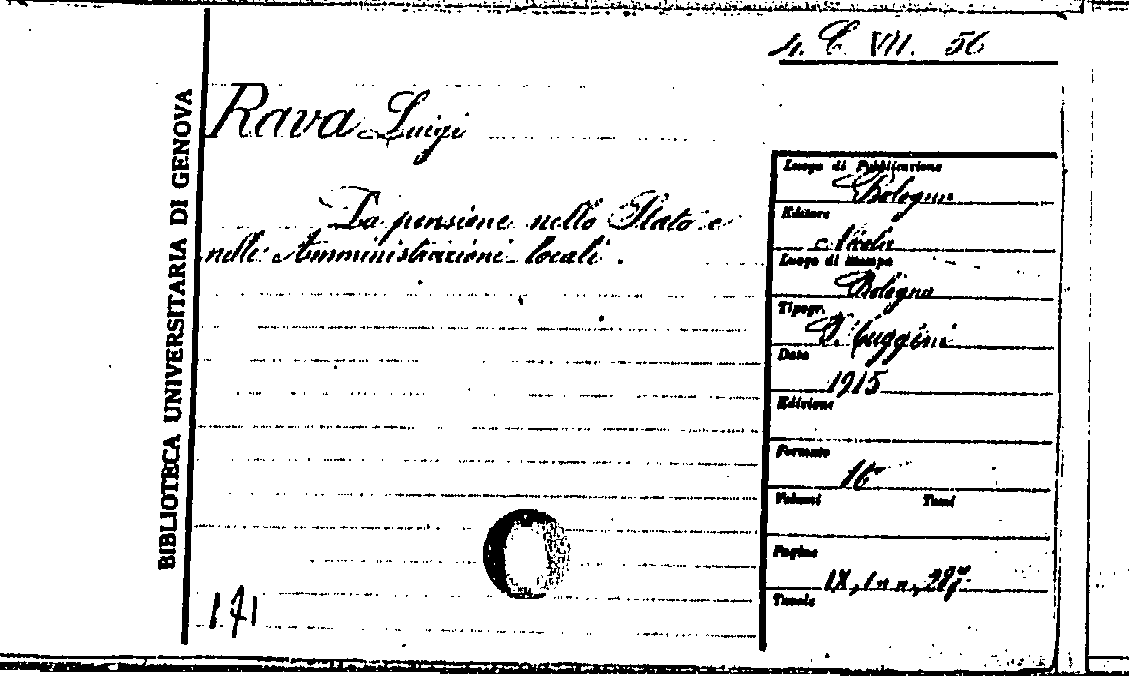 4. C. VII. 56
BIBLIOTECA UNIVERSITARIA DI GENOVA
Rava Luigi
La pensione nello Stato e
nelle Amministrazioni locali.
Luogo di Pubblicazione
Bologna
Editore
Luogo di stampa
Bologna
Tipogr.
Cuggini
Data
1915
Edizione
Formato
16°
Volumi Tomi
Pagine
IX, 1 n n,
Tavole
171